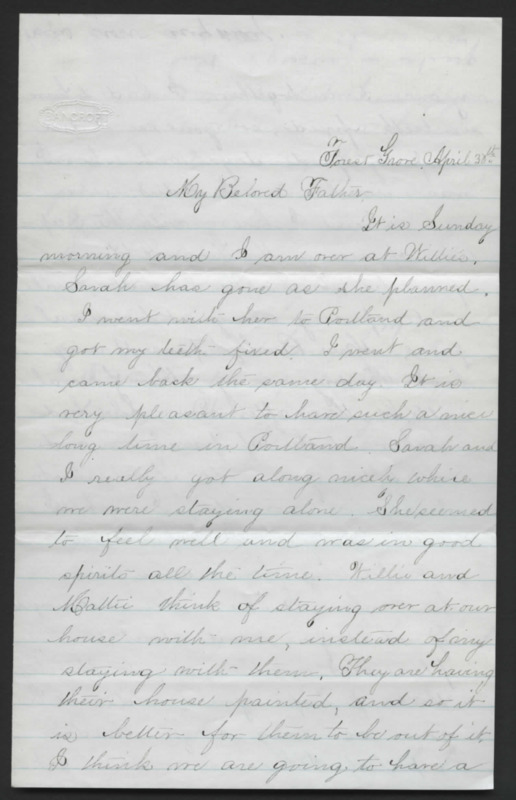 BANCROFT
Forest Grove, April 30th
My Beloved Father,
It is Sunday
morning and I am over at Willie's.
Sarah has gone as she planned.
I went with her to Portland and
got my teeth fixed. I went and
came back the same day. It is
very pleasant to have such a nice
long time in Portland. Sarah and
I really got along nicely while
we were staying alone. She seemed
to feel well and was in good
spirits all the time. Willie and
Mattie think of staying over at our
house with me, instead of my
staying with them. They are having
their house painted, and so it
is better for them to be out of it.
I think we are going to have a